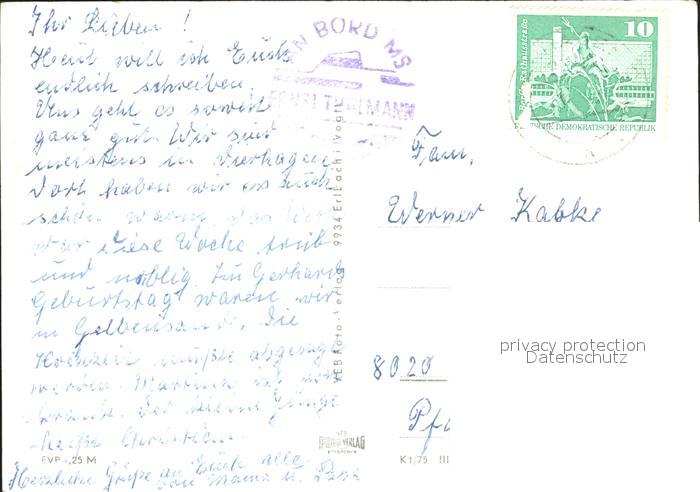 Ihr Lieben !
Heut will ich Euch
endlich schreiben.
Uns geht es soweit
ganz gut. Wir sind
meistens in Dierhagen
Dort haben wir es auch
schön warm, das
war diese Woche trüb
und neblig. Zu Gerhards
Geburtstag waren wir
in Gelbensande. Die
Hochzeit mußte abgesagt
werden. Martina ist
Der kleine Junge
heißt Christian.
Herzliche Grüße an Euch alle
von Mama u. Papa
EVP -,25 M
AN BORD MS
ERNST THÄLMANN
VEB Foto-Verlag 9934 Erlbach i. Vogtl.
VEB
FOTO-VERLAG
ERLBACH
K 1/75 III
10
Berlin Rathausstraße
DEUTSCHE DEMOKRATISCHE REPUBLIK
Fam.
Werner Kabke
privacy protection
Datenschutz
8020